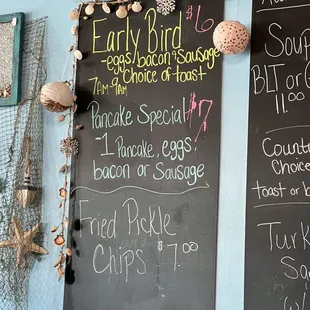 Early Bird $6
-eggs, bacon or sausage
7AM-9AM Choice of toast
Pancake Special $7
-1 Pancake, eggs,
bacon or Sausage
Fried Pickle
Chips $7.00
Soup
BLT or G
11.00
Count
Choice
toast or b
Turk
Sa
w/